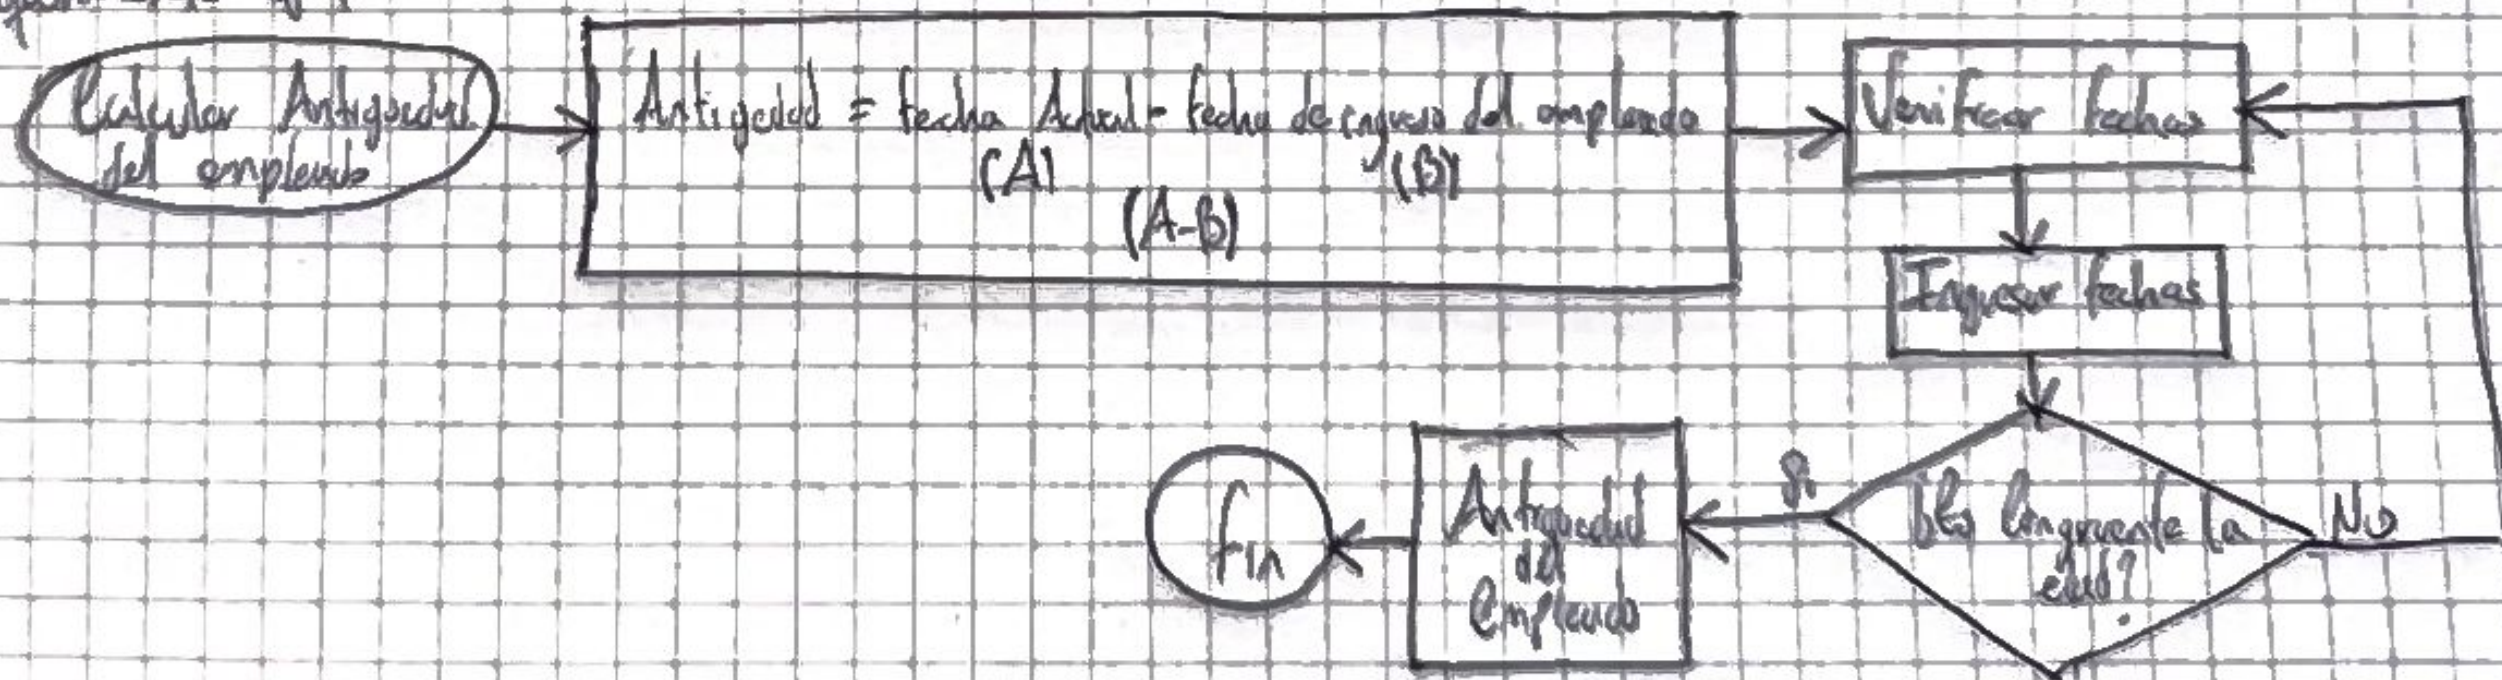 Calcular Antiguedad
del empleado
Antigedad = fecha Actual - fecha de ingreso del empleado
(A) (B)
(A-B)
Verificar fechas
Ingresar fechas
¿Es Congruente la
edad?
Si
No
Antiguedad
del
Empleado
fin